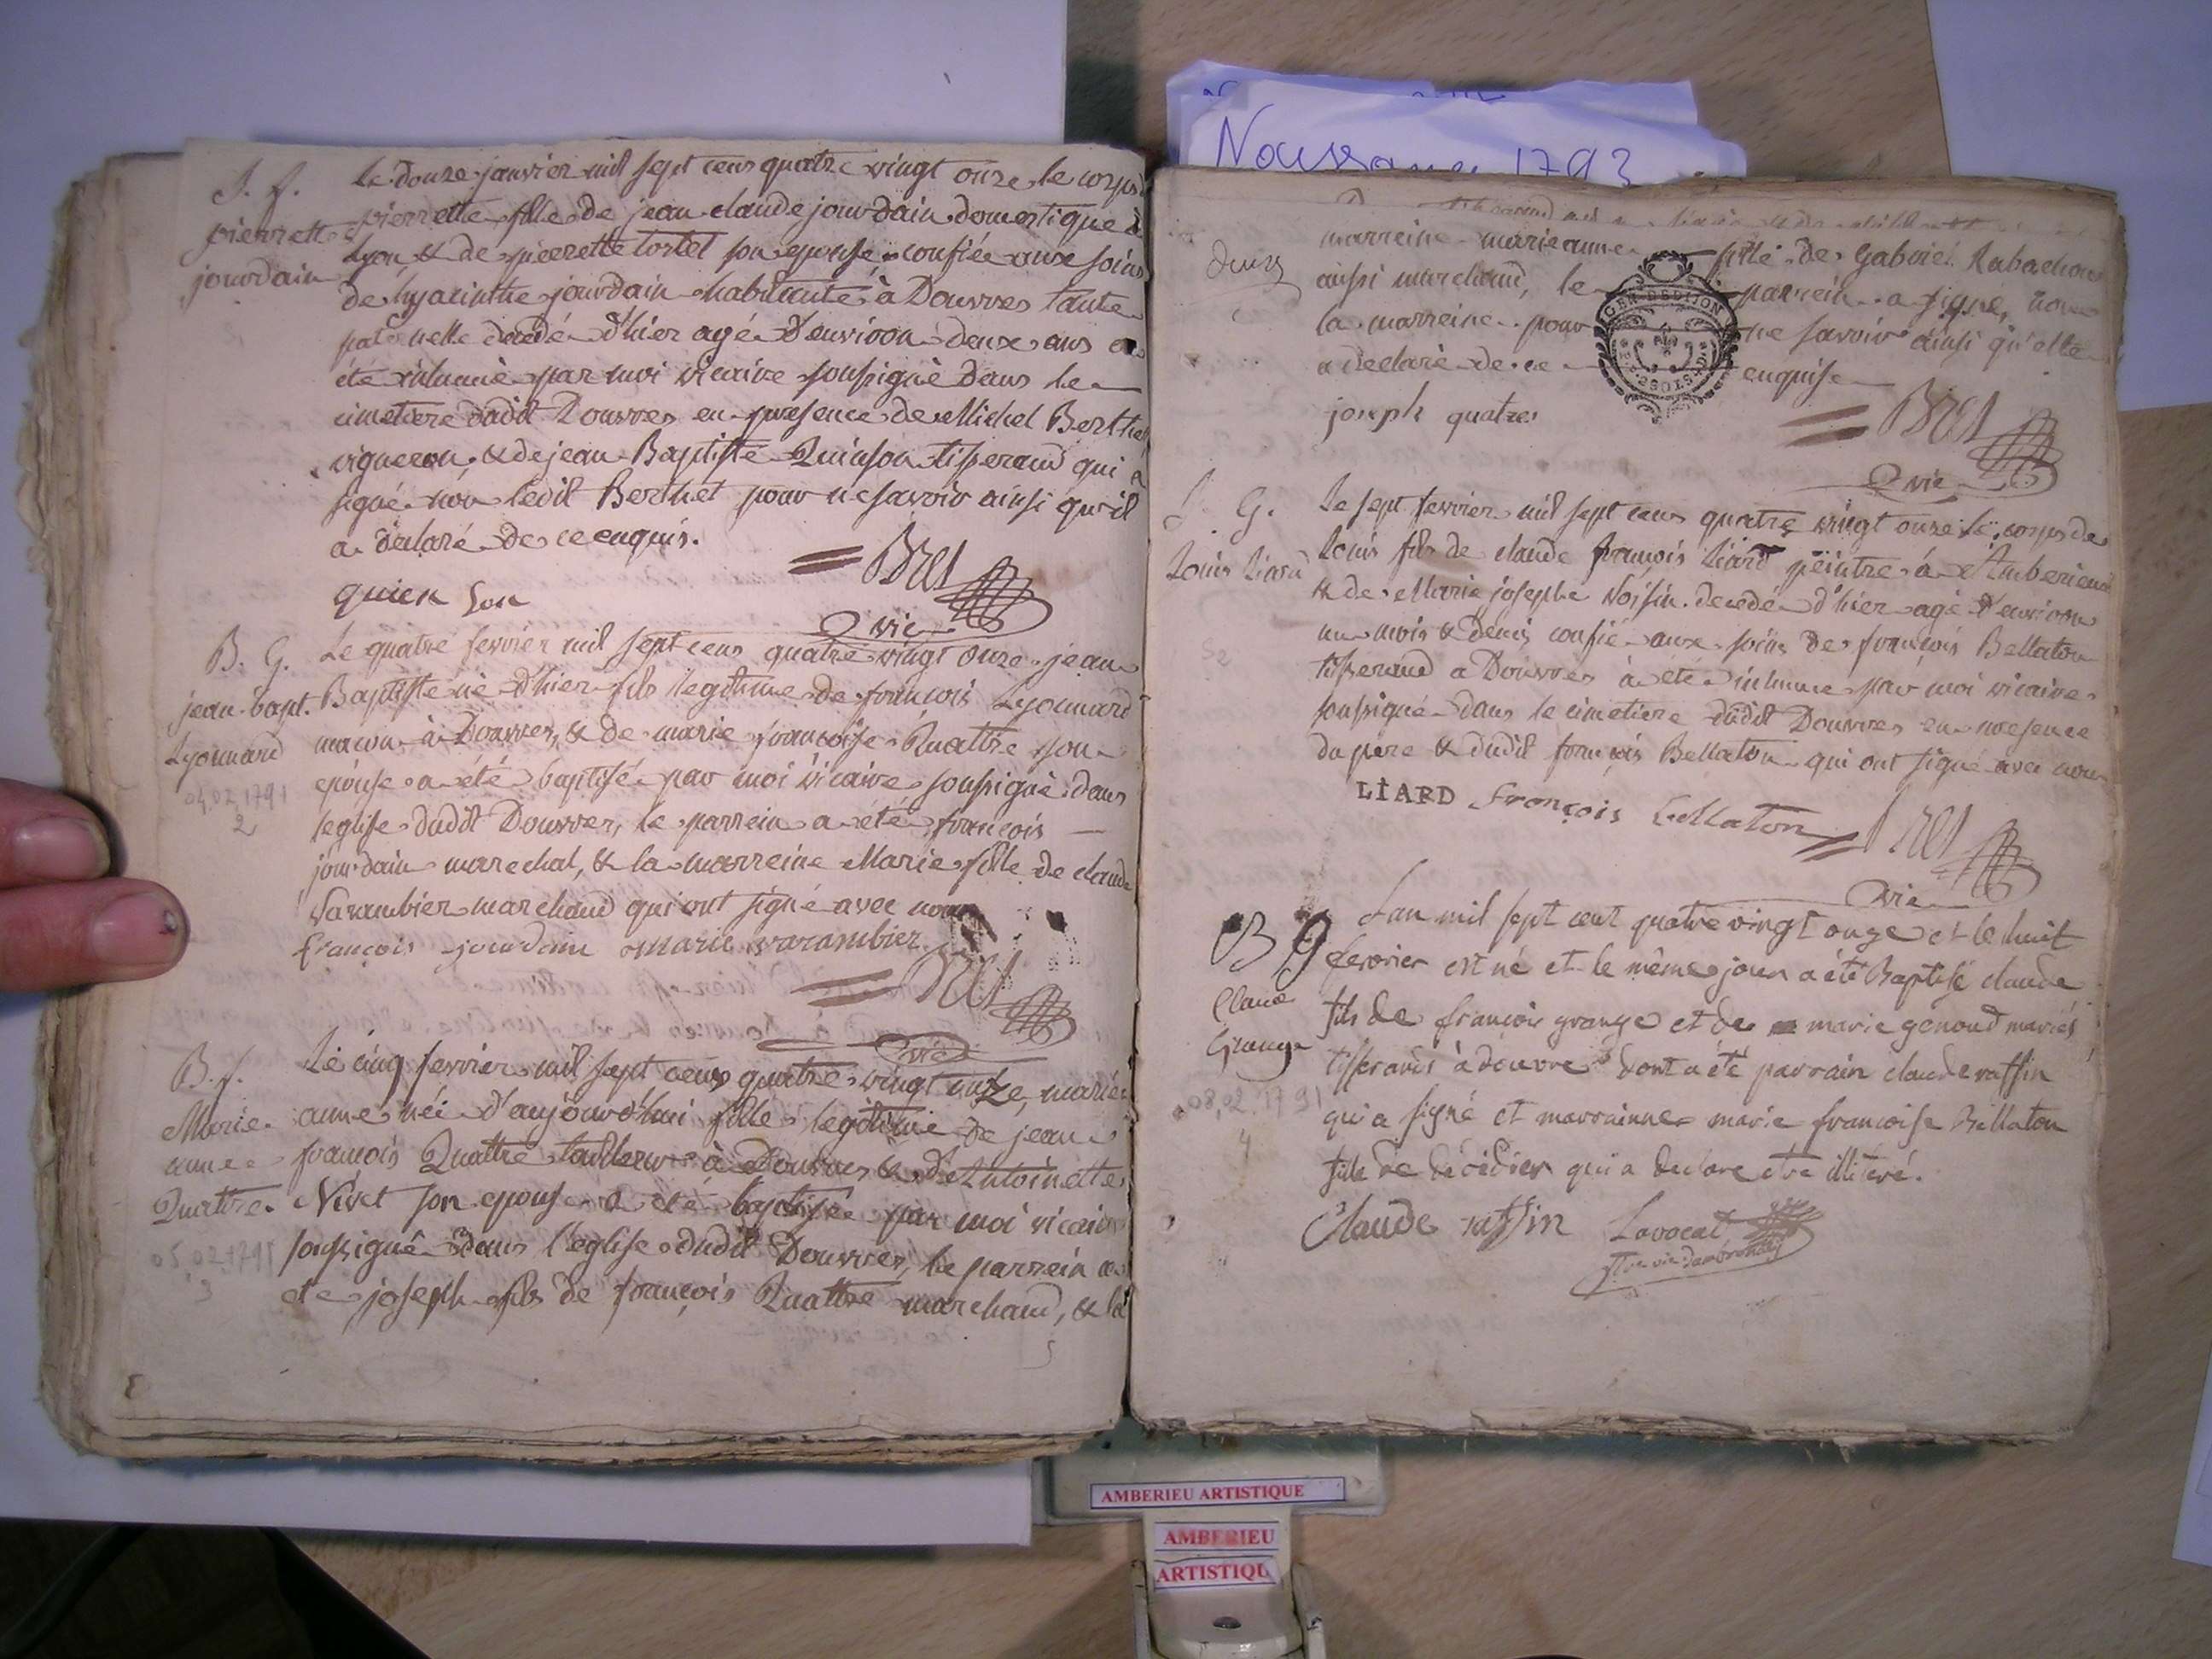 S. f.
pierrette
jourdain
Le douze janvier mil sept cens quatre vingt onze le corps
pierrette fille de jean claude jourdain domestique à
Lyon & de pierrette tortel son epouse confiée aux soins
de hyacinthe jourdain habitante à Douvres tante
paternelle decedé d'hier agé d'environ deux ans a
été inhumé par moi vicaire soussigné dans le
cimetiere dudit Douvres en presence de Michel Berthet
vigneron, & de jean Baptiste Quinson tisserand qui a
signé non ledit Berthet pour ne savoir ainsi qu'il
a declaré de ce enquis.
quien son
Bret
vic
B. G.
jean bapt.
Lyonnard
04,02,1791
2
Le quatre fevrier mil sept cens quatre vingt onze jean
Baptiste né d'hier fils legitime de françois Lyonnard
macon à Douvres, & de marie françoise Quattre son
epouse a été baptisé par moi vicaire soussigné dans
leglise dudit Douvres, le parrein a été françois
jourdain marechal, & la marreine Marie fille de claude
Varambier marchand qui ont signé avec nous
françois jourdain marie varambier
Bret
vic
B. f.
Marie
anne
Quattre.
05 02 1791
3
Le cinq fevrier mil sept cens quatre vingt onze, marie
anne née d'aujourd'hui fille legitime de jean
françois Quattre tailleur à Douvres & d'Antoinette
Nivet son epouse a été baptisée par moi vicaire
soussigné dans l'eglise dudit Douvres, le parrein a
ete joseph fils de françois Quattre marchand, & la
5
Noussance 1793
deux
marreine marie anne fille de Gabriel Rabachon
aussi marchand, le parrein a signé, non
la marreine pour ne savoir ainsi qu'elle
a declaré de ce enquise
GEN. DE DIJON
joseph quatre
Bret
vic
S. G.
Louis Liard
Le sept fevrier mil sept cens quatre vingt onze le corps de
Louis fils de claude françois Liard peintre à Amberieux
& de Marie josephe Voisin decedé d'hier agé d'environ
un mois & demi confié aux soins de françois Bellaton
tisserand a Douvres à été inhumé par moi vicaire
soussigné dans le cimetiere dudit Douvres en presence
du pere & dudit françois Bellaton qui ont signé avec nous
LIARD françois Bellaton Bret
vic
B g
Claude
Grange
08,02,1791
4
Lan mil sept cent quatre vingt onze et le huit
fevrier est né et le même jour a été Baptisé claude
fils de françois grange et de marie genoud mariés
tisserands à douvre dont a été parrain claude raffin
qui a signé et marrainne marie françoise Bellaton
fille de décidier qui a declaré être illiteré.
Claude raffin Lavocat
ptre vic d'ambronay
AMBERIEU ARTISTIQUE
AMBERIEU
ARTISTIQU